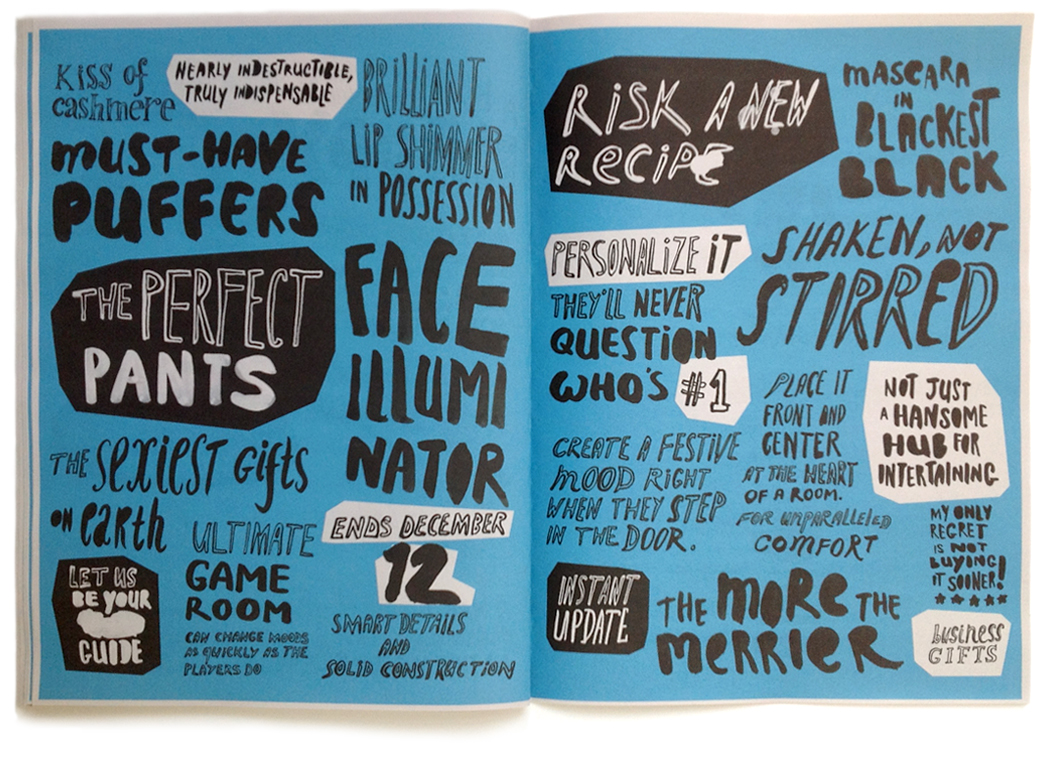 Kiss of
cashmere
NEARLY INDESTRUCTIBLE,
TRULY INDISPENSABLE
BRILLIANT
LIP SHIMMER
IN POSSESSION
MUST-HAVE
PUFFERS
THE PERFECT
PANTS
FACE
ILLUMI
NATOR
THE SEXIEST Gifts
ON EARTH
ULTIMATE
GAME
ROOM
CAN CHANGE MOODS
AS QUICKLY AS THE
PLAYERS DO
LET US
BE YOUR
GUIDE
ENDS DECEMBER
12
SMART DETAILS
AND
SOLID CONSTRUCTION
RISK A NEW
RECIPE
MASCARA
IN
BLACKEST
BLACK
PERSONALIZE IT
THEY'LL NEVER
QUESTION
WHO'S #1
SHAKEN, NOT
STIRRED
CREATE A FESTIVE
MOOD RIGHT
WHEN THEY STEP
IN THE DOOR.
PLACE IT
FRONT AND
CENTER
AT THE HEART
OF A ROOM.
NOT JUST
A HANSOME
HUB FOR
INTERTAINING
FOR UNPARALLELED
COMFORT
MY ONLY
REGRET
IS NOT
BUYING
IT SOONER!
★★★★★
INSTANT
UPDATE
THE MORE THE
MERRIER
business
GIFTS